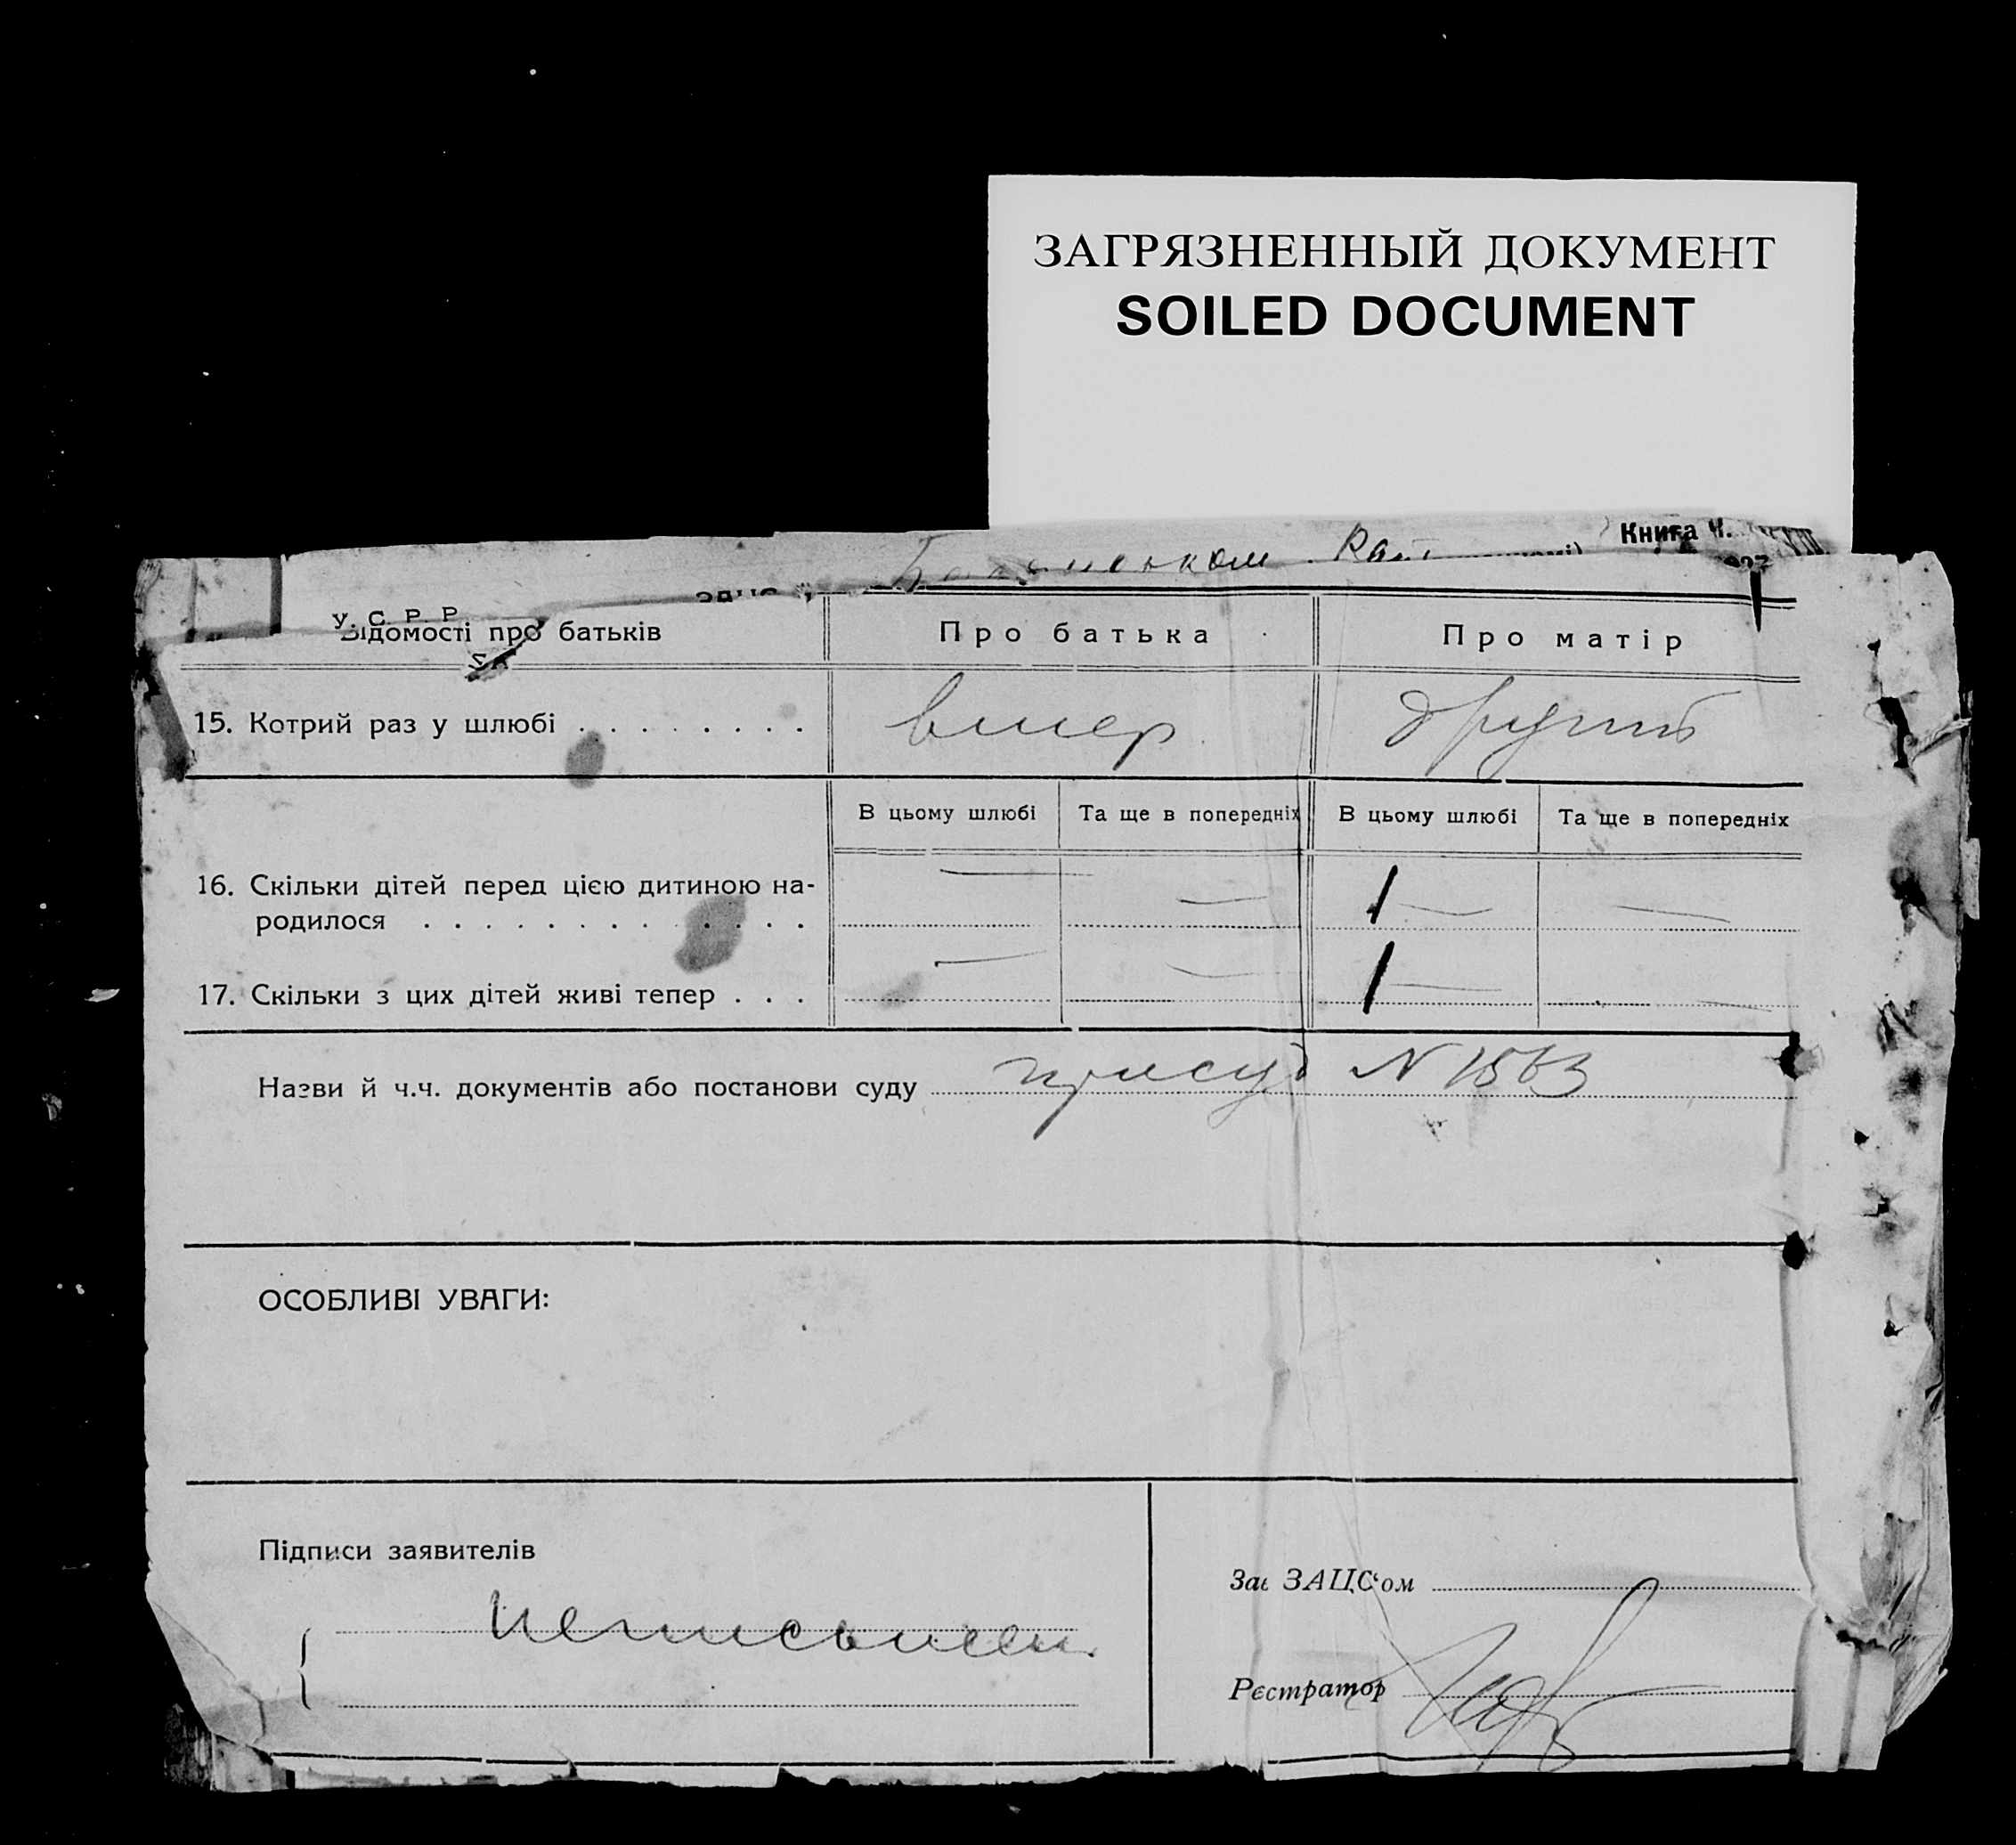 ЗАГРЯЗНЕННЫЙ ДОКУМЕНТ
SOILED DOCUMENT
Книга Ч.
У. С. Р. Р.
Відомості про батьків Про батька Про матір
15. Котрий раз у шлюбі . . . . . . . . вмер другий
В цьому шлюбі Та ще в попередніх В цьому шлюбі Та ще в попередніх
16. Скільки дітей перед цією дитиною на- — — 1 — —
родилося . . . . . . . . . . . . .
17. Скільки з цих дітей живі тепер . . . — — 1 — —
Назви й ч.ч. документів або постанови суду присуд N
ОСОБЛИВІ УВАГИ:
Підписи заявителів
Неписьмен.
Зав ЗАЦС‘ом
Реєстратор